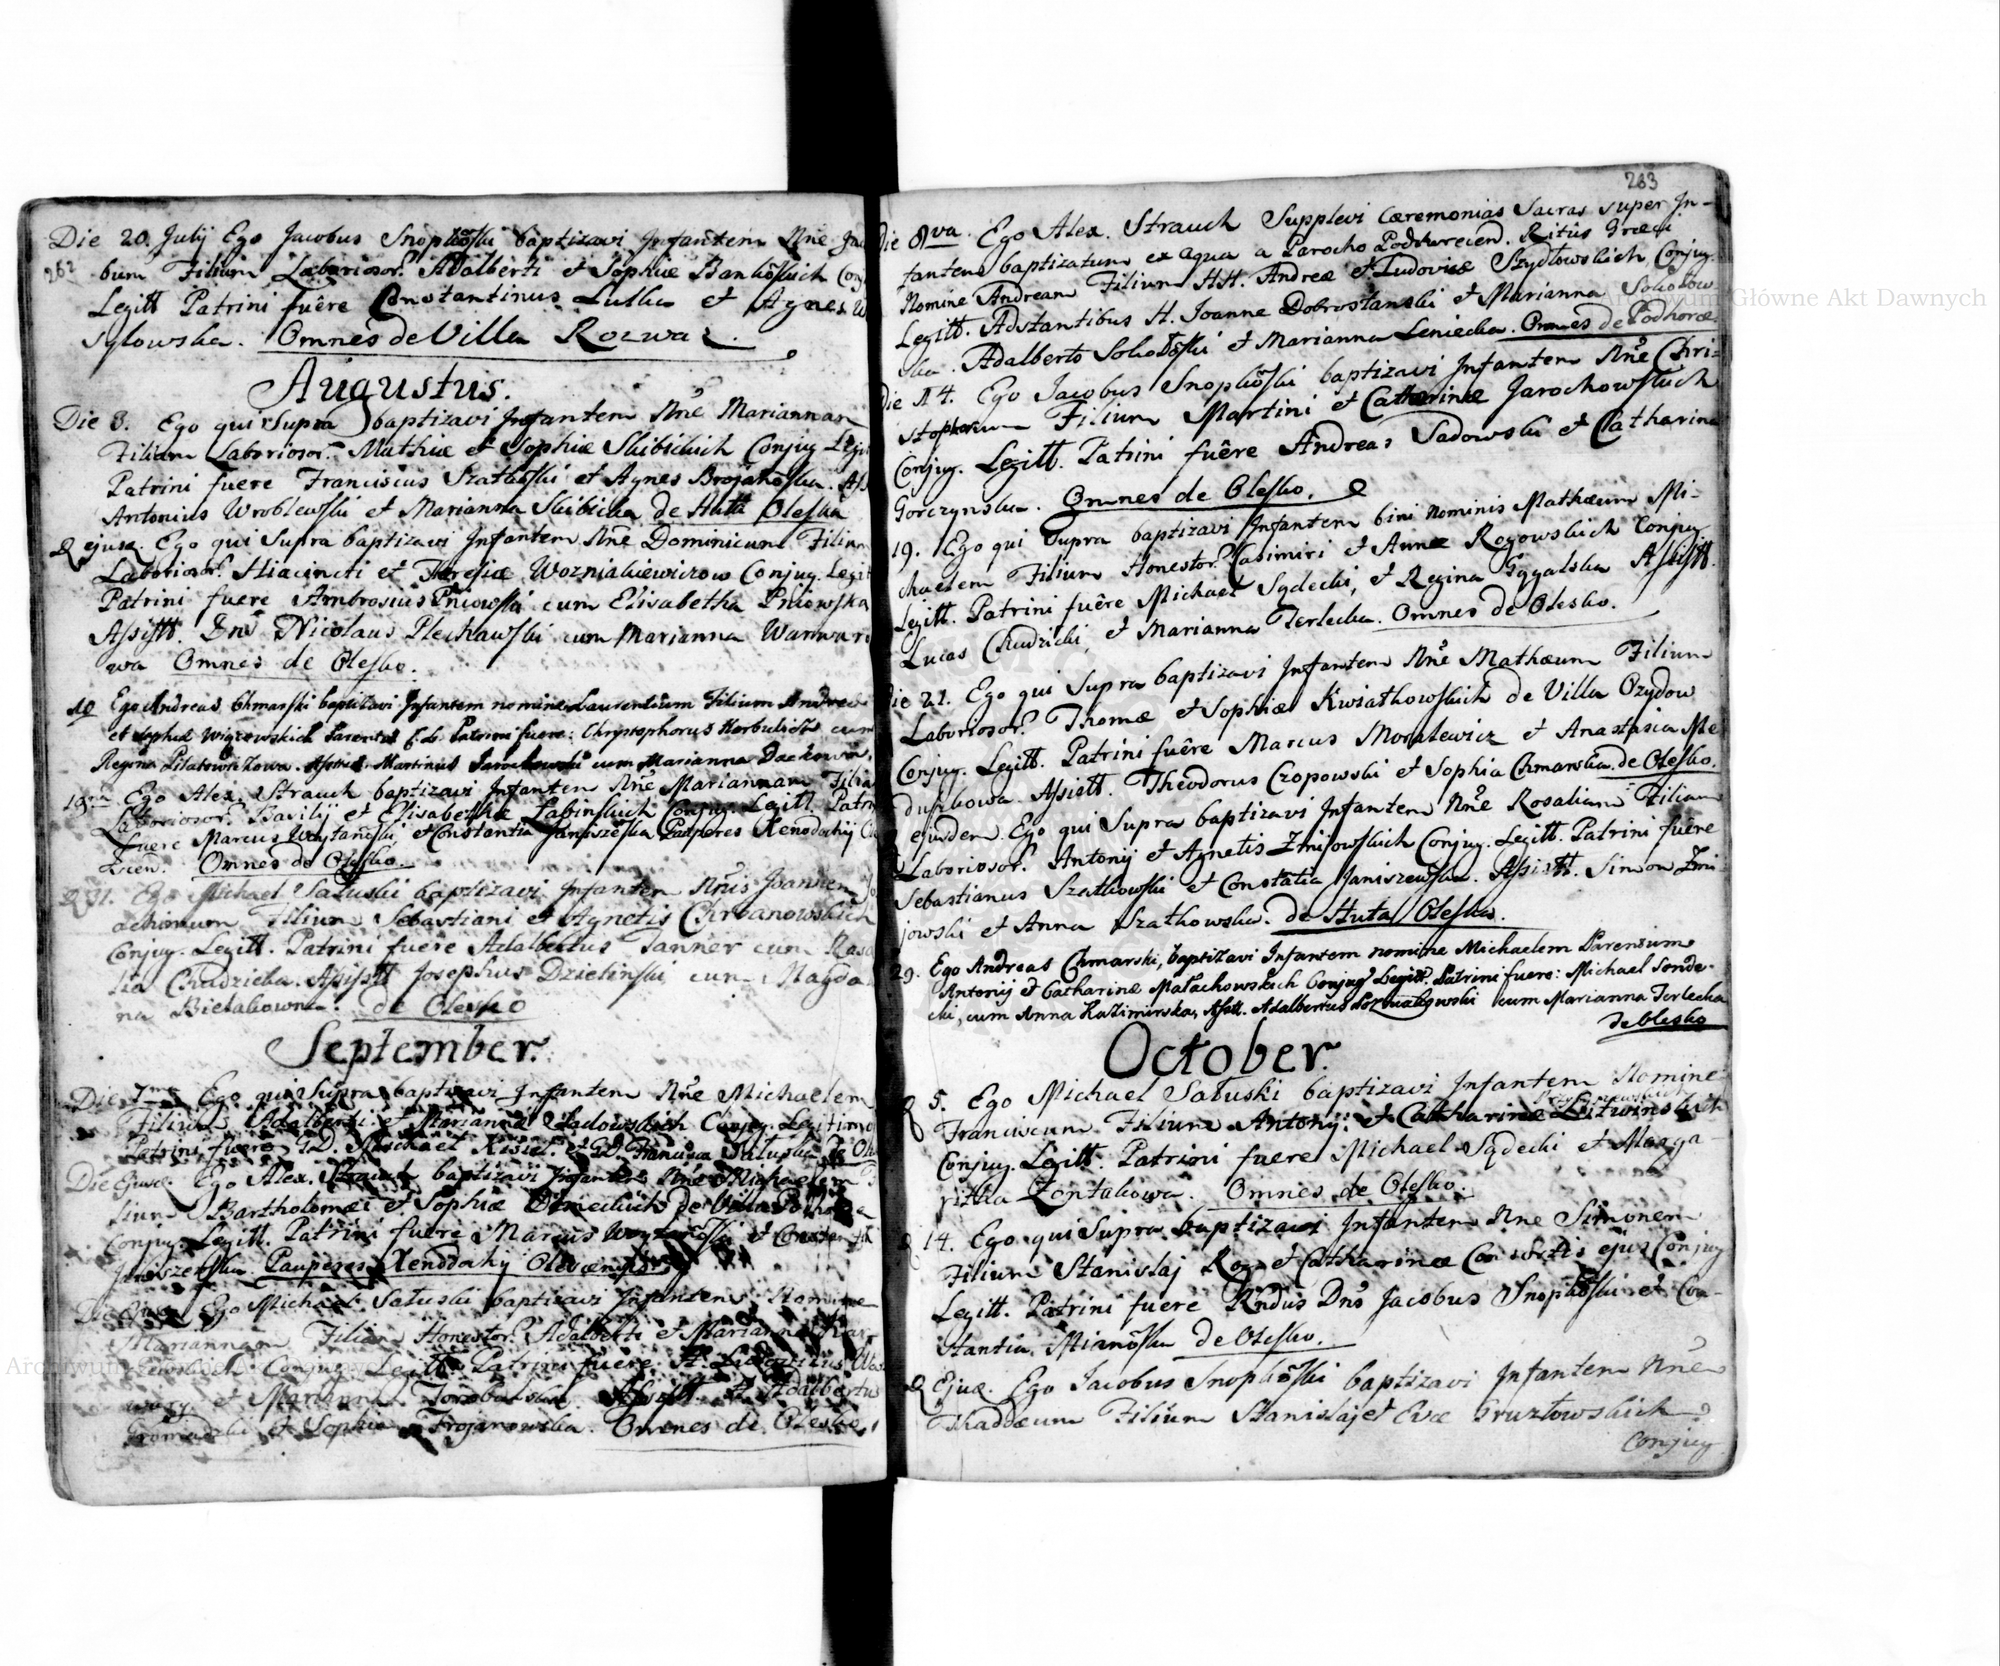 Die 20. July Ego Jacobus Snopkoski baptizavi Infantem Nne Jaco
262
bum Filium Laborioso. Adalberti et Sophiæ Bankoskich Conj
Legitt Patrini fuêre Constantinus Lutka et Agnes
sylowska. Omnes de Villa Rozwaz.
Augustus.
Die 3. Ego qui Supra baptizavi Infantem Nne Mariannam
Filiam Laborioso. Mathiæ et Sophiæ Skibickich Conjug Legit
Patrini fuere Franciscus Szatkoski et Agnes Brojakoska. Ass
Antonius Wroblewski et Marianna Skibicka de Huta Oleska
D ejusd. Ego qui Supra baptizavi Infantem Nne Dominicum Filium
Laborioso. Hiacincti et Theresiæ Wozniakiewiczow Conjug. Legit
Patrini fuere Ambrosius Pniowski cum Elisabetha Pniowska
Assistt. Dns Nicolaus Plechawski cum Marianna Warwaro
wa Omnes de Olesko.
10 Ego Andreas Chmarski baptizavi Infantem nomine Laurentium Filium Andreæ
et Sophiæ Parentes Patrini fuere: Chrystophorus Herbulicz cum
Regina Pilatowiczowa. Assist. Martinus Jarockowski cum Marianna
19na Ego Alex. Strauch baptizavi Infantem Nne Mariannam Filiam
Laborioso. Basilij et Elisabethæ Labinskich Conjug. Legitt. Patrini
fuere Marcus Woytanski, et Constantia Janiszeska Pauperes Xenodochij
Omnes de Olesko.
D 31. Ego Michael Saluski baptizavi Infantem Nnis Joannem Jo
achimum Filium Sebastiani et Agnetis Chrzanowskich
Conjug. Legitt. Patrini fuere Adalbertus Tanner cum Rosa
lia Chudzicka. Assistt Josephus Dzielinski cum Magda
na Bielakowna. de Olesko
September.
Die 7ma Ego qui Supra baptizavi Infantem Nne Michaelem
Filium Adalberti et Mariannæ Conjug. Legitimo
Patrini fuere GD. Michael et GD. Francisca Saluska de Ole
Die Ejusd. Ego Alex. Strauch baptizavi Infantem Nne Michaelem Fi
lium Bartholomæi et Sophiæ de Villa
Conjug. Legitt. Patrini fuere Marcus Woytanski et Constantia
Janiszeska. Pauperes Xenodochij
Die Ejusd. Ego Michael Saluski baptizavi Infantem Nomine
Mariannam Filiam Honestor. Adalberti et Mariannæ
Conjug. Legitt. Patrini fuere H.
et Marianna Assistt. H. Adalbertus
Gromadzki et Sophia Trojanowska. Omnes de Olesko.
283
Die 8va. Ego Alex. Strauch Supplevi Cæremonias Sacras super In-
fantem baptizatum ex aqua a Parocho Podhorecien. Ritus Græci
Nomine Andream Filium H.H. Andreæ et Ludovicæ Szydlowskich, Conjug.
Legitt. Adstantibus H. Joanne Dobroslanski et Marianna Sokolow
ska. Adalberto Sokoloski et Marianna Leniecka. Omnes de Podhorce.
Die 14. Ego Jacobus Snopkoski baptizavi Infantem Nne Chri=
stophorum Filium Martini et Catharinæ Jarochowskich
Conjug. Legitt. Patrini fuêre Andreas Sadowski et Catharina
Gorczynska. Omnes de Olesko.
19. Ego qui Supra baptizavi Infantem bini Nominis Mathæum Mi-
chaelem Filium Honestor. Casimiri et Annæ Rogowskich Conjug
Legitt. Patrini fuêre Michael Sądecki, et Regina Assistt.
Lucas Chudzicki, et Marianna Terlecka. Omnes de Olesko.
Die 21. Ego qui Supra baptizavi Infantem Nne Mathæum Filium
Laborioso. Thomæ et Sophiæ Kwiatkowskich de Villa Ozydow
Conjug. Legitt. Patrini fuêre Marcus Moralewicz et Anastasia Me
duszkowa. Assistt. Theodorus Czopowski et Sophia Chmarska. de Olesko.
D ejusdem. Ego qui Supra baptizavi Infantem Nne Rosaliam Filiam
Laborioso. Antonij et Agnetis Zmijowskich Conjug. Legitt. Patrini fuêre
Sebastianus Szatkowski et Constatia Janiszewska. Assistt. Simon Zmi-
jowski et Anna Szatkowska. de Huta Oleska.
29. Ego Andreas Chmarski, baptizavi Infantem nomine Michaelem Parentum
Antonij et Catharinæ Malachowskich Conjug Legitt. Patrini fuere: Michael Sende-
cki, cum Anna Kazimirska, Assitt. Adalbertus cum Marianna Terlecka
de Olesko
October.
D 5. Ego Michael Saluski baptizavi Infantem Nomine
Franciscum Filium Antonij et Catharinæ Litwinskich
Conjug. Legitt. Patrini fuere Michael Sądecki et Marga-
ritha Zontakowa. Omnes de Olesko.
D 14. Ego qui Supra baptizavi Infantem Nne Simonem
Filium Stanislaj Roz et Catharinæ Consortis ejus Conjug
Legitt. Patrini fuere Rndus Dns Jacobus Snopkoski et Con-
stantia Mianoska de Olesko.
D Ejusd. Ego Jacobus Snopkoski baptizavi Infantem Nne
Thaddæum Filium Stanislaj et Evæ Gruzlowskich
Conjug
Archiwum Główne Akt Dawnych
Archiwum Główne Akt Dawnych